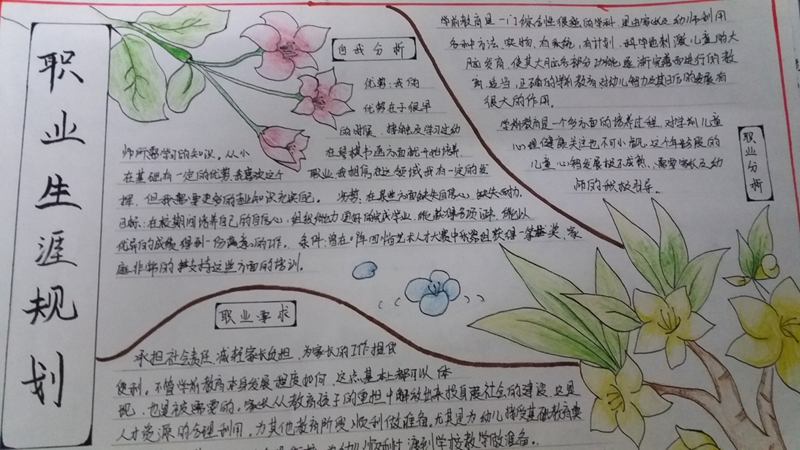 职业生涯规划
自我分析
优势:我的
优势在于很早
的时候,接触及学习过幼
师所需学习的知识。从小
在琴棋书画方面就开始培养
在基础有一定的优势去喜欢这个
职业,我相信这领域我有一定的发
挥,但我需要更多的专业知识充实自己。
劣势:在某些方面缺失自信心,缺失耐力。
目标:在校期间培养自己的自信心,组织能力,更好的完成学业,能获得各项证书,能以
优异的成绩得到一份满意的工作。
条件:曾在
艺术人才大赛中
获得一等奖,家
庭非常的支持这些方面的培训。
职业要求
承担社会责任,减轻家长负担,为家长的工作提供
便利。不管学前教育本身发展程度如何,这点基本上都可以体
现,也是被需要的。家长从教育孩子的重担中解放出来投身于社会的建设,这是
人才资源的合理利用。为其他教育阶段顺利做准备。尤其是为幼儿接受基础教育奠
学前教育是一门综合性很强的学科,是由家长及幼师利用
各种方法,实物,有系统,有计划,科学地刺激儿童的大
脑发育,使其大脑各部分功能逐渐完善而进行的教
育。适当、正确的学前教育对幼儿智力及其日后的发展有
很大的作用。
学前教育是一个多方面的培养过程,对学前儿童
心理健康关注也不可小觑,这个阶段的
儿童心智发展极不成熟,需要家长及幼
师的积极引导。
职业分析